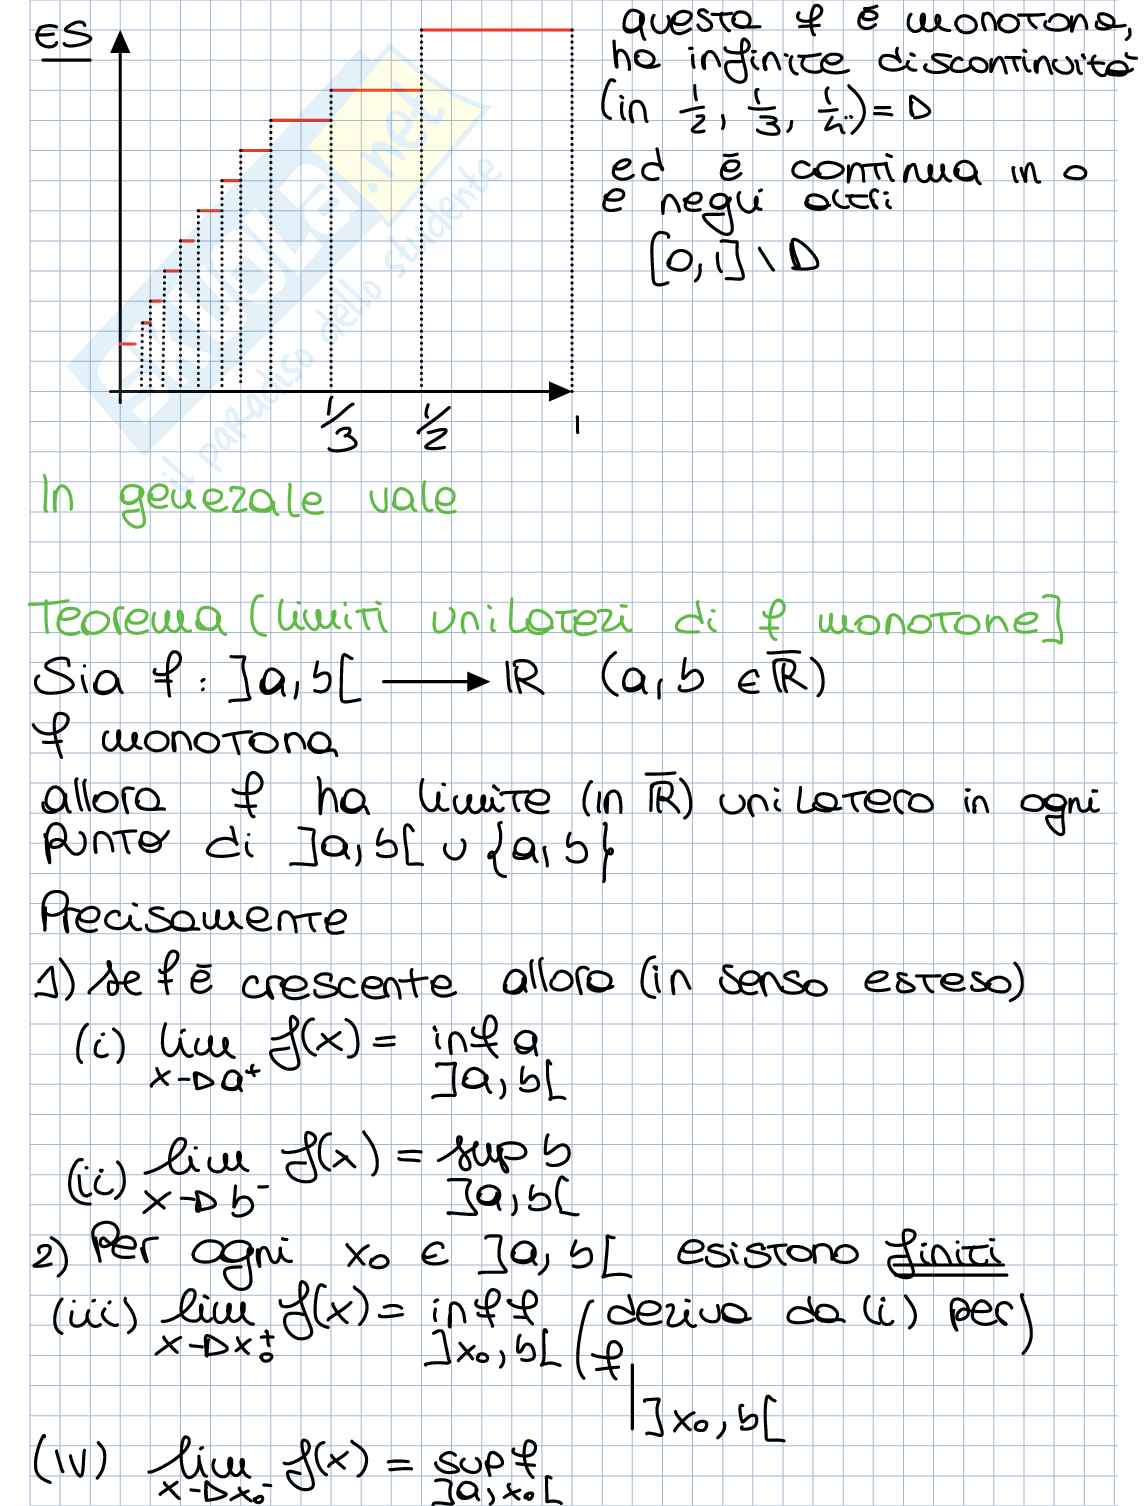 ES
questa f è monotona,
ha infinite discontinuità
(in 1/2, 1/3, 1/4..) = D
ed è continua in 0
e negli altri
[0,1] \ D
1/3
1/2
1
SKUOLA.net
il paradiso dello studente
In generale vale
Teorema (limiti unilateri di f monotone]
Sia f : ]a,b[ → ℝ (a, b ∈ ℝ̅)
f monotona
allora f ha limite (in ℝ̅) unilatero in ogni
punto di ]a,b[ ∪ {a,b}
Precisamente
1) se f è crescente allora (in senso esteso)
(i) lim f(x) = inf a
x→a⁺ ]a,b[
(ii) lim f(x) = sup b
x→b⁻ ]a,b[
2) Per ogni x₀ ∈ ]a,b[ esistono finiti
(iii) lim f(x) = inf f (deriva da (i) per)
x→x₀⁺ ]x₀,b[ f
| ]x₀,b[
(iv) lim f(x) = sup f
x→x₀⁻ ]a,x₀[